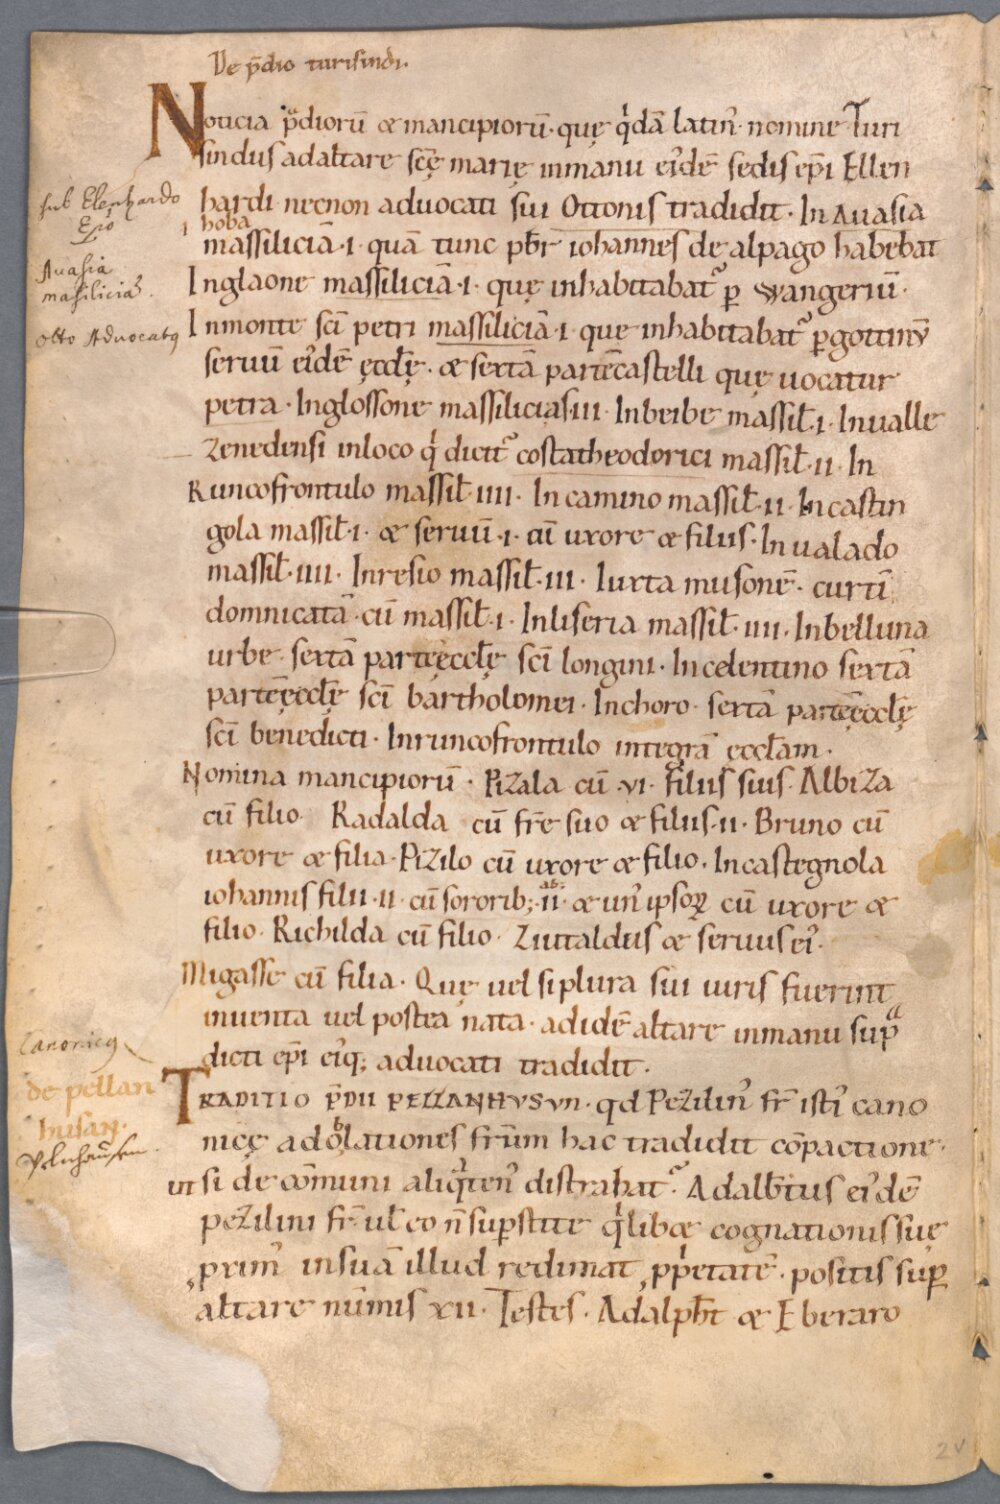 De p̄dio turisindi.
Noticia p̄dioruͫ & mancipioruͫ· quę q'dā latin᷒· nomine Turi
sindus ad altare scę̄ marię in manu ei᷒dē sedis ep̄i Ellen
hardi necnon aduocati sui Ottonis tradidit· In Auasia
i hoba
massiliciā·i· quā tunc pb̄r iohannes de alpago habebat
sub Elenhardo
Ep̄o
Auasia
massilicia
Otto Aduocatus
Inglaone massiliciā·i· quę inhabitabat᷒ p̱ Wangeriū·
Inmonte sc̄i petri massiliciā·i· quę inhabitabat᷒ p̱ gottinū
seruū ei᷒dē ęccłę· & sextā partē castelli quę uocatur
petra· Inglossone massilicias·iii· Inbeibe massił·i· Inualle
Zenedensi inloco q' dicit᷒ costatheodorici massił·ii· In
Runcofrontulo massił·iiii· In camino massił·ii· In castin
gola massił·i· & seruū·i· cū uxore & filiis· In ualado
massił·iiii· Inresio massił·iii· Iuxta musonē· curtī
domnicatā· cū massił·i· Inliseria massił·iiii· Inbelluna
urbe· sextā partē ęccłę sc̄i longini· In celentino sextā
partē ęccłę sc̄i bartholomei· Inchoro· sextā partē ęccłę
sc̄i benedicti· Inruncofrontulo integrā ęccłam·
Nomina mancipiorū· Pizala cū·vi· filiis suis· Albiza
cū filio· Radalda cū fr̄e suo & filiis·ii· Bruno cū
uxore & filia· Pizilo cū uxore & filio· Incastegnola
iohannis filii·ii· cū sororib;·ab;·ii· & un᷒ ipsoꝝ cū uxore &
filio· Richilda cū filio· Zuttaldus & seruus ei᷒·
Migasse cū filia· Quę uel si plura sui iuris fuerint
inuenta uel postea nata· ad idē altare in manu sup̄ᵃ
dicti ep̄i ei᷒q; aduocati tradidit·
Canonicus
de pellan
husan·
Pelnhausen
TRADITIO P̄DII PELLANHVSVN· qd Pezilin᷒ fr̄ isti᷒ cano
nicę ad oblationes fr̄um hac tradidit cō pactione·
ut si de cōmuni aliq'ten᷒ distrahat᷒· Adalb̄tus ei᷒dē
pezilini fr̄ uł eo n̄ sup̱stite q'lib& cognationis suę
prim᷒ insuā illud redimat ꝓp'etatē· positis sup̱
altare nūmis xii· Testes· Adalp̄ht & Eberaro
2v